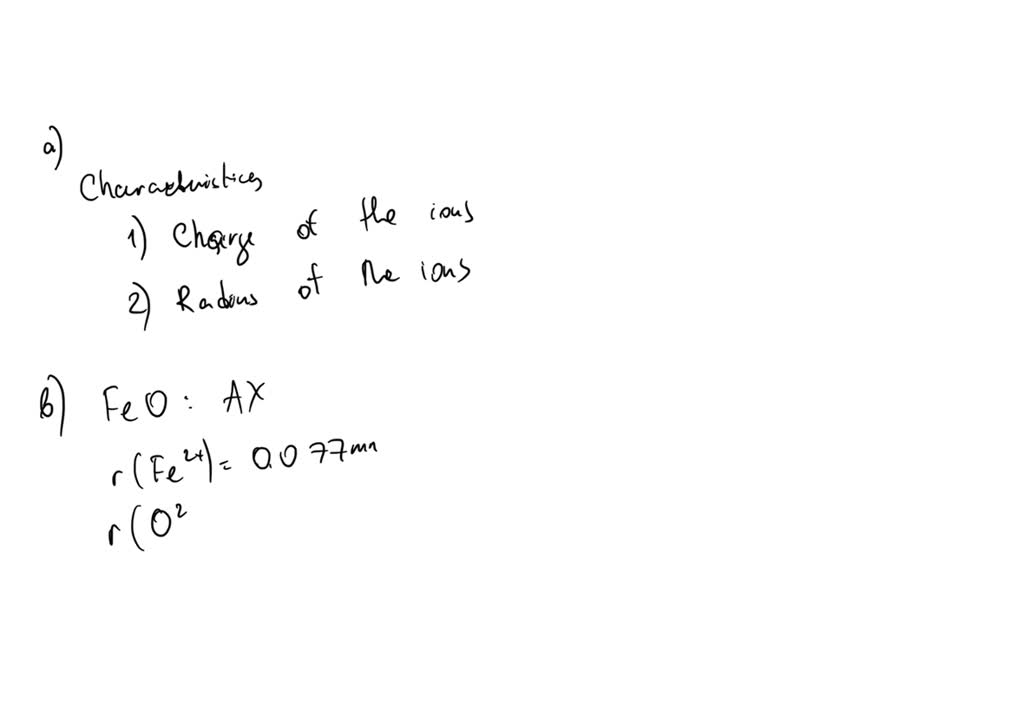 a)
Characteristics
1) Charge of the ions
2) Radius of the ions
b) FeO : AX
r(Fe²⁺) = 0.077mn
r(O²